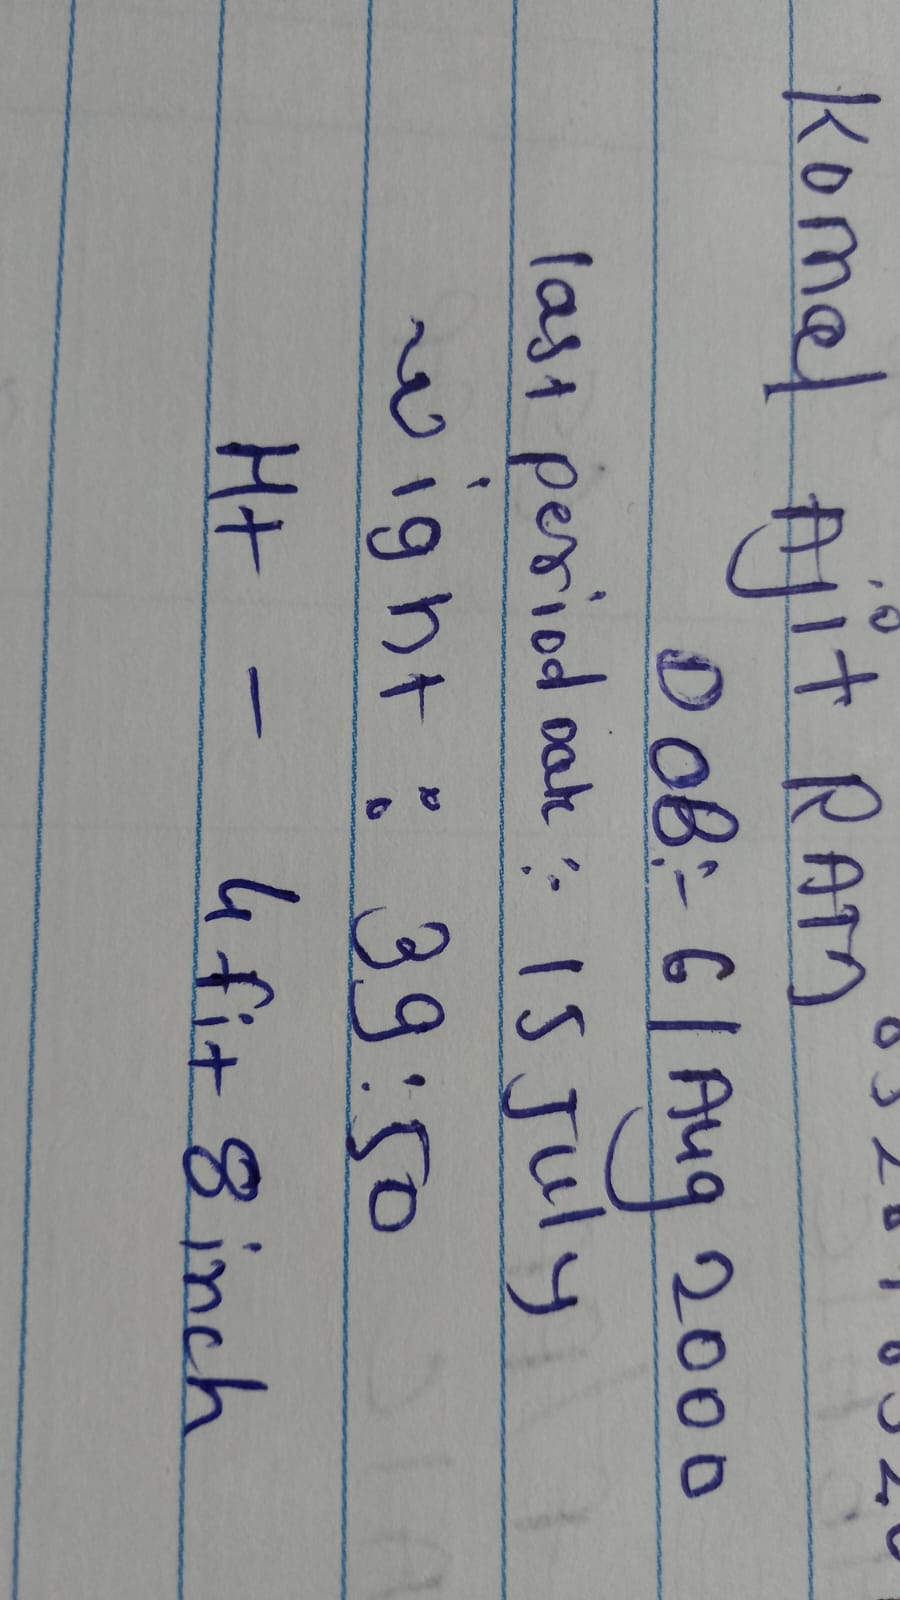 Komal Ajit RAM
DOB:- 6/Aug 2000
last period date: 15 July
wight: 39:50
Ht - 4 fit 8 inch